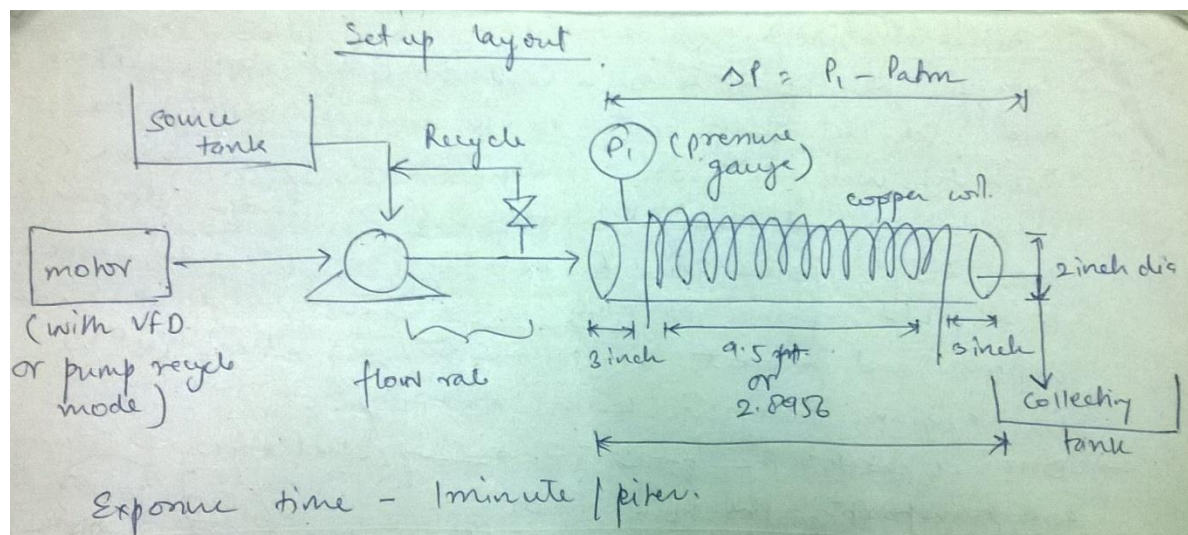 Set up layout
ΔP = P1 - Patm
source
tank
Recycle
P1
(pressure
gauge)
copper coil.
motor
2 inch dia
(with VFD
or pump recycle
mode)
flow rate
3 inch
9.5 ft.
or
2.8956
3 inch
collecting
tank
Exposure time - 1 minute /